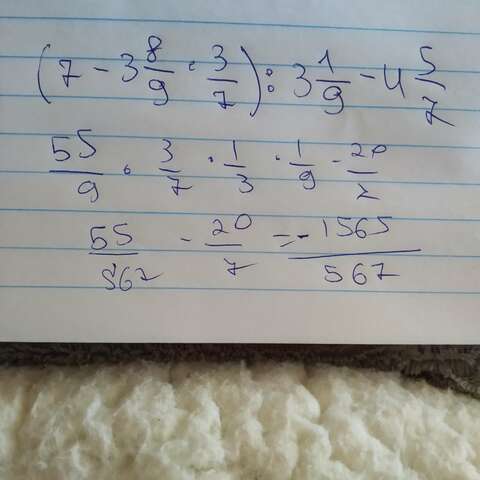 (7 - 3 8/9 · 3/7) : 3 1/9 - 4 5/7
55/9 · 3/7 · 1/3 · 1/9 - 20/7
55/567 - 20/7 = -1565/567